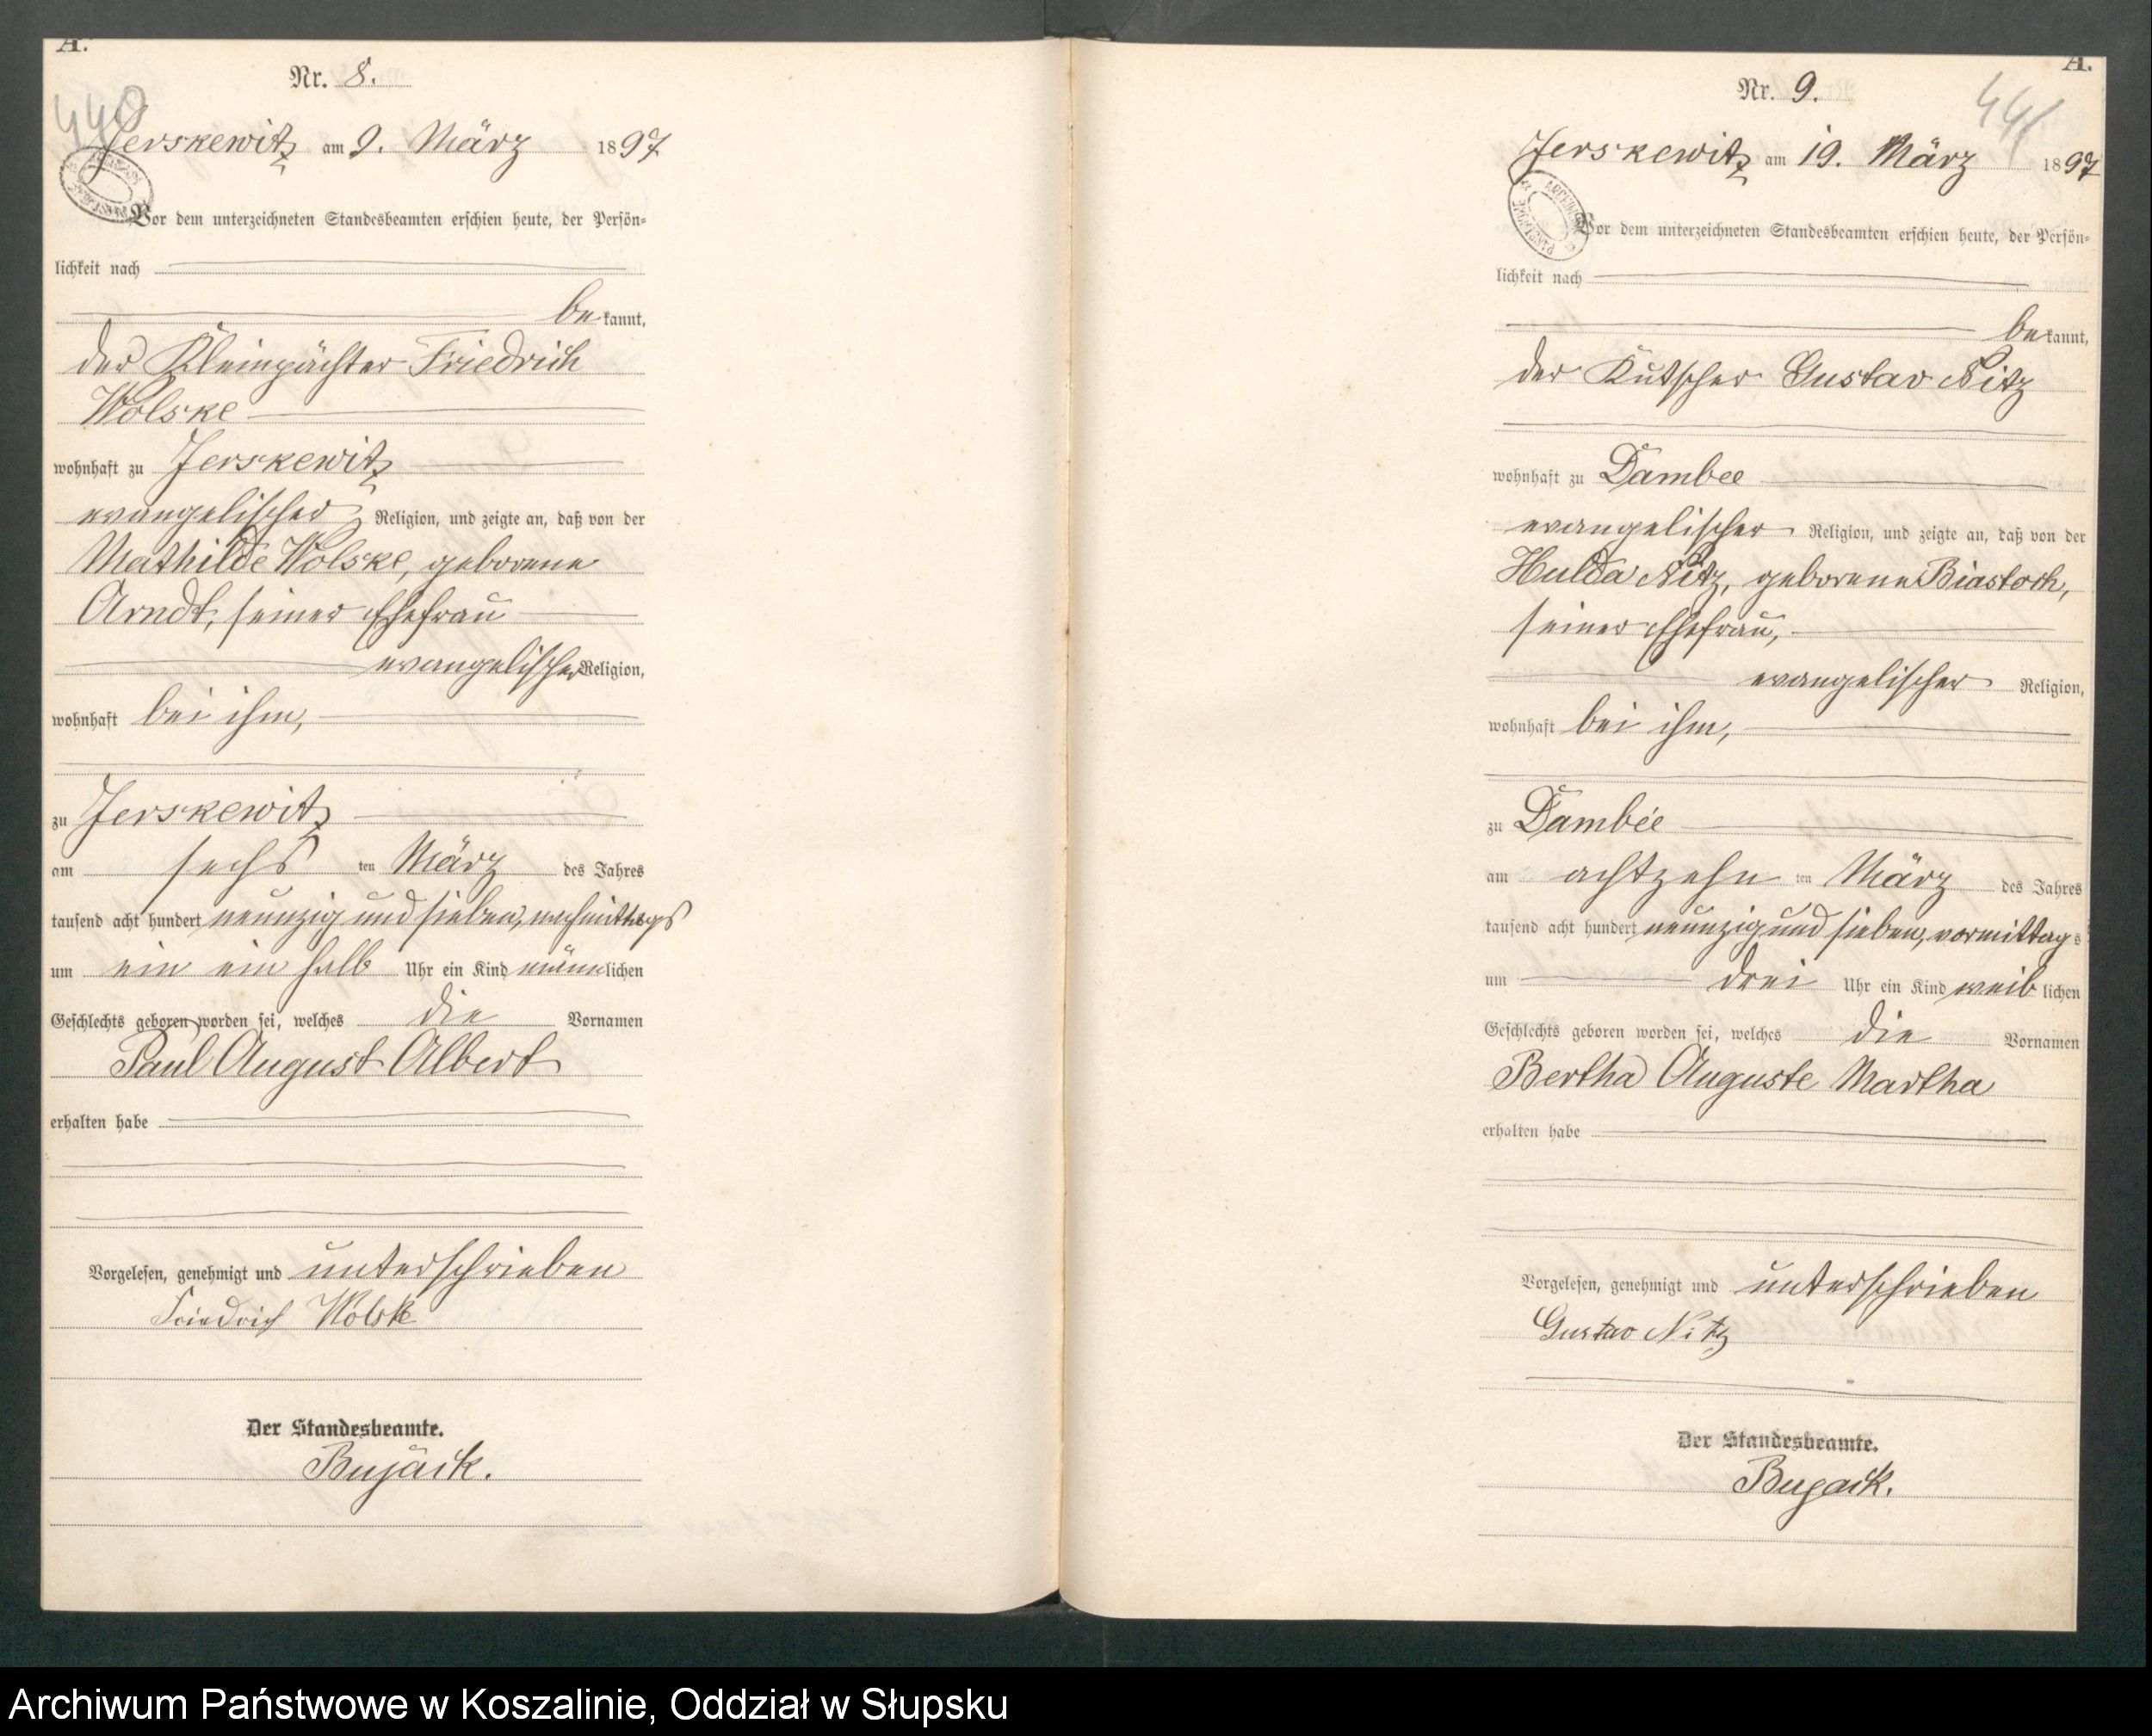 A.
Nr. 8.
440
Jerskewitz am 9. März 1897
Vor dem unterzeichneten Standesbeamten erschien heute, der Persön-
lichkeit nach
be kannt,
der Kleinpächter Friedrich
Wolske
wohnhaft zu Jerskewitz
evangelischer Religion, und zeigte an, daß von der
Mathilde Wolske, geborene
Arndt, seiner Ehefrau
evangelischer Religion,
wohnhaft bei ihm,
zu Jerskewitz
am sechs ten März des Jahres
tausend acht hundert neunzig und sieben, nachmittags
um ein ein halb Uhr ein Kind männlichen
Geschlechts geboren worden sei, welches die Vornamen
Paul August Albert
erhalten habe
Vorgelesen, genehmigt und unterschrieben
Friedrich Wolske
Der Standesbeamte.
Bujack.
A.
Nr. 9.
441
Jerskewitz am 19. März 1897
Vor dem unterzeichneten Standesbeamten erschien heute, der Persön-
lichkeit nach
be kannt,
der Kutscher Gustav Nitz
wohnhaft zu Dambee
evangelischer Religion, und zeigte an, daß von der
Hulda Nitz, geborene Biastoch,
seiner Ehefrau,
evangelischer Religion,
wohnhaft bei ihm,
zu Dambee
am achtzehn ten März des Jahres
tausend acht hundert neunzig und sieben, vormittags
um drei Uhr ein Kind weiblichen
Geschlechts geboren worden sei, welches die Vornamen
Bertha Auguste Martha
erhalten habe
Vorgelesen, genehmigt und unterschrieben
Gustav Nitz
Der Standesbeamte.
Bujack.
Archiwum Państwowe w Koszalinie, Oddział w Słupsku